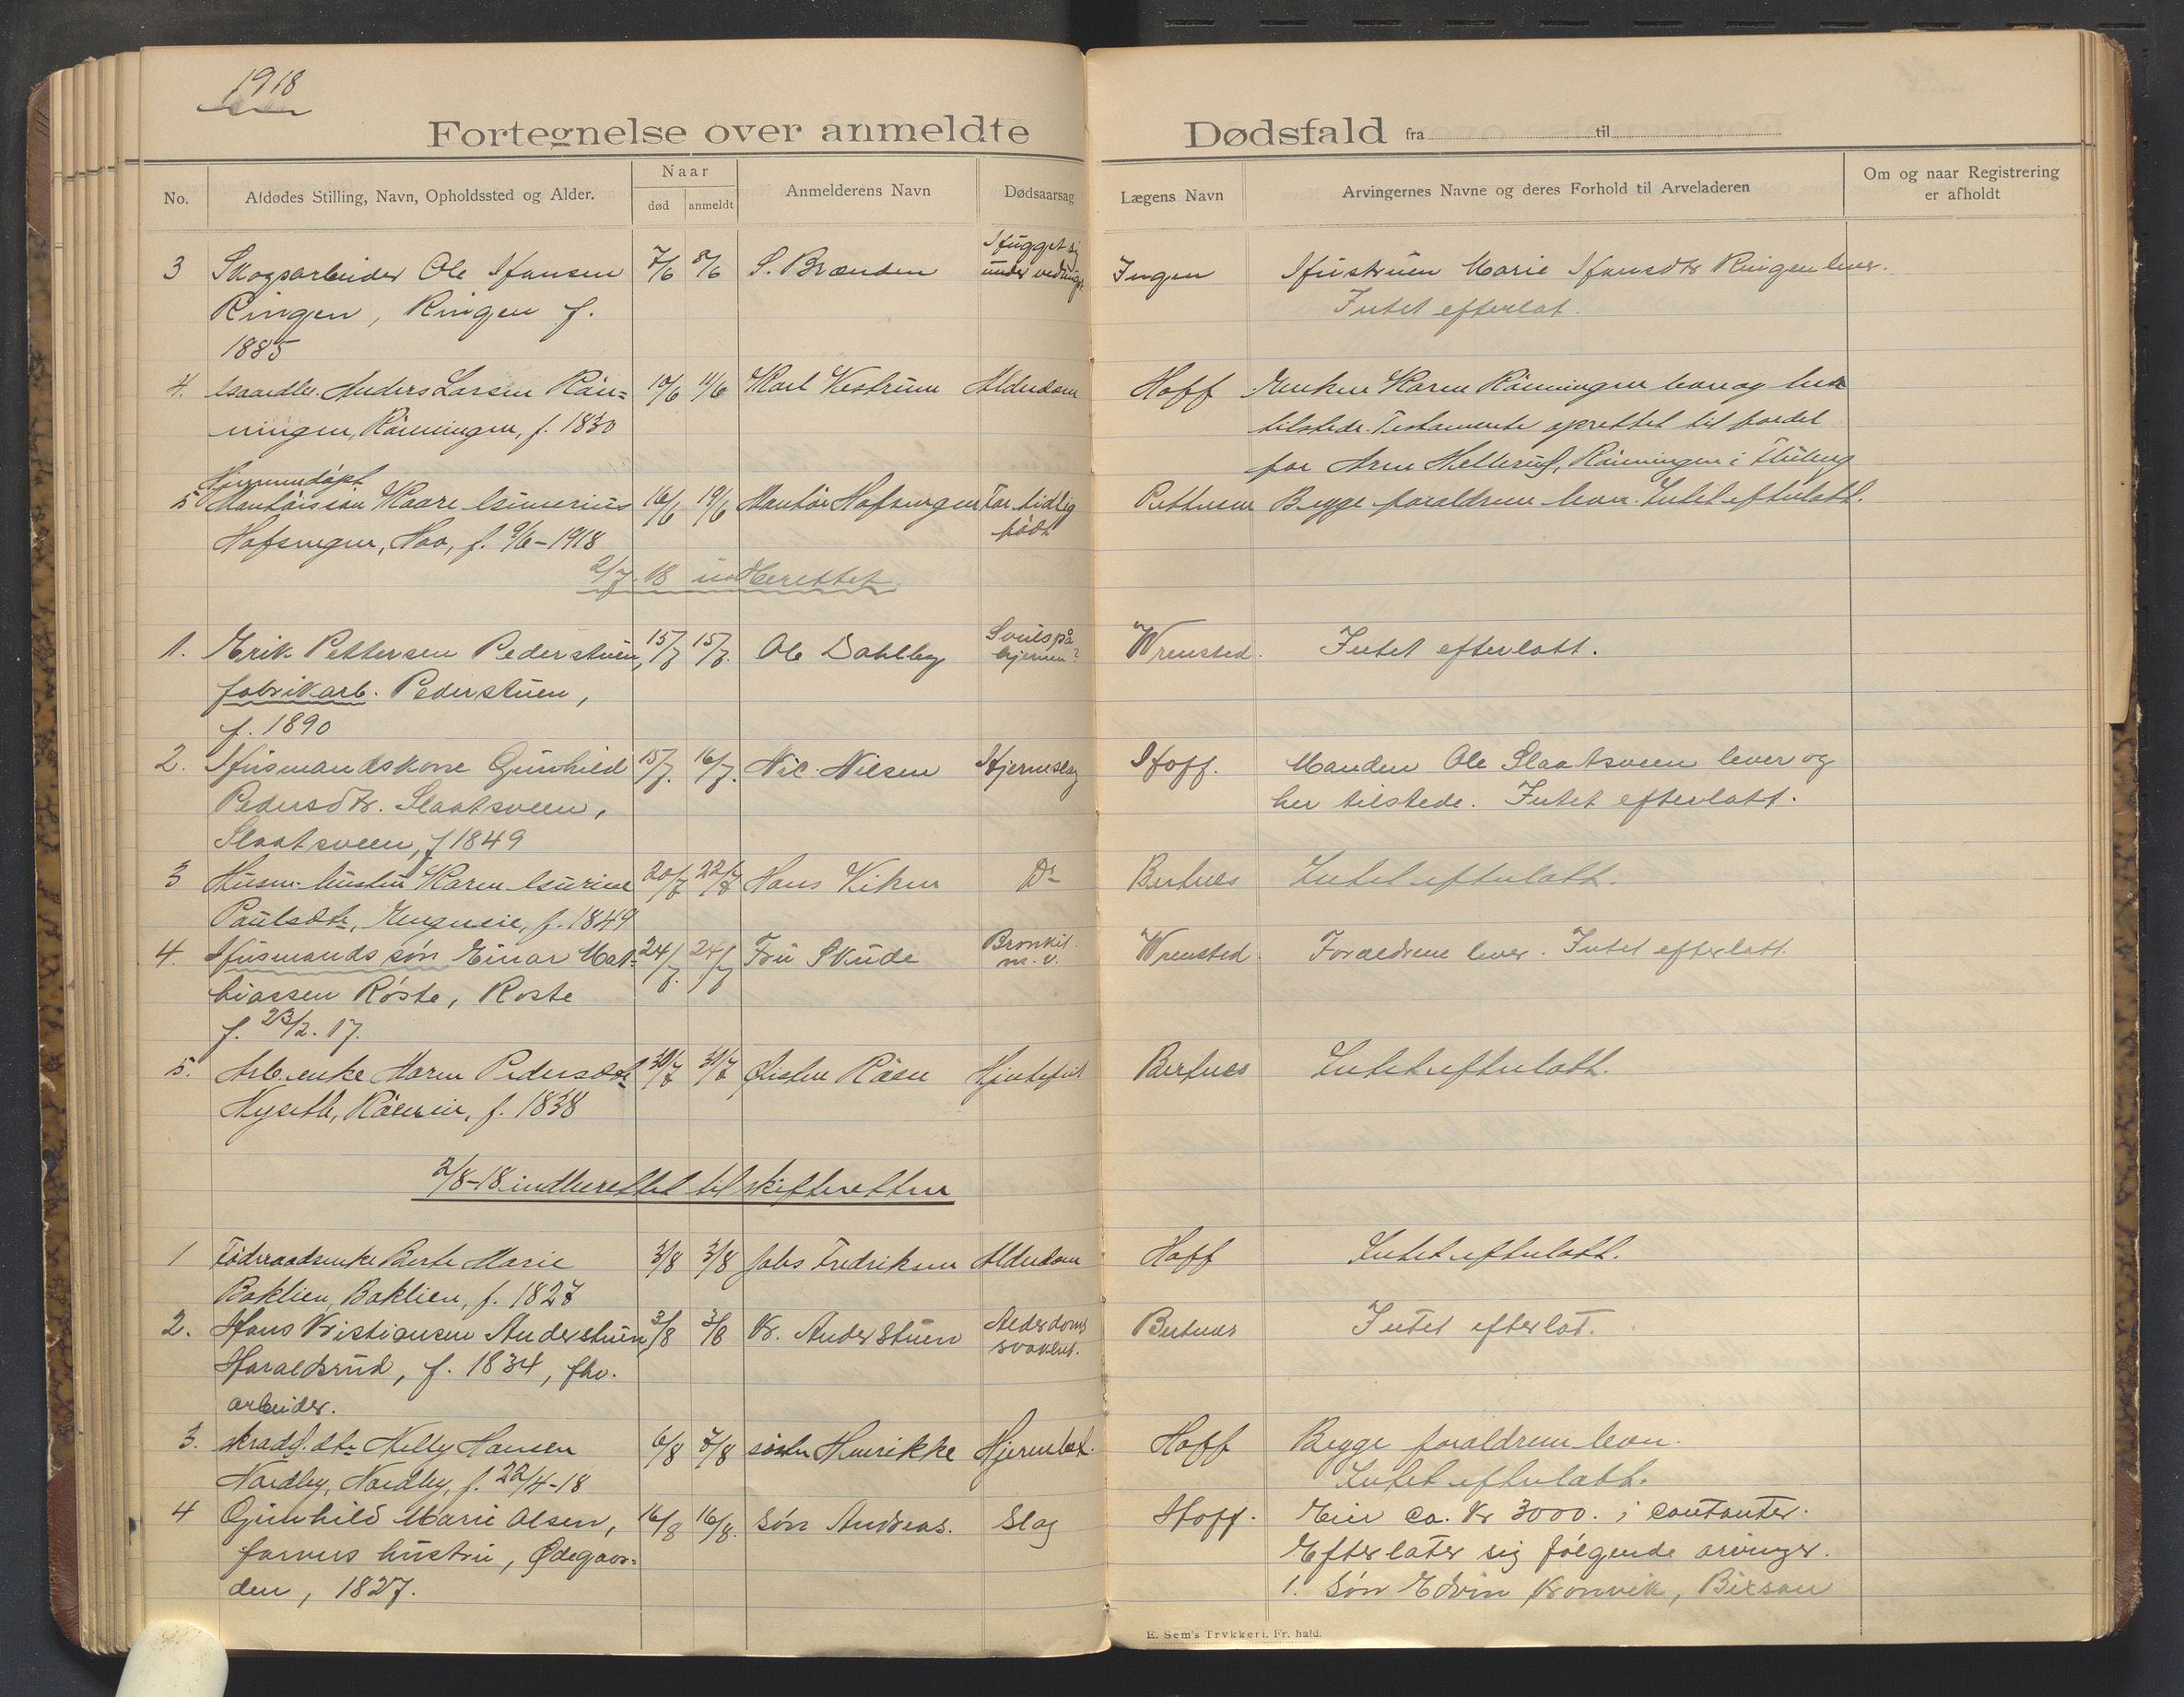 1918
Fortegnelse over anmeldte Dødsfald fra til
No. Afdødes Stilling, Navn, Opholdssted og Alder. Naar død anmeldt Anmelderens Navn Dødsaarsag Lægens Navn Arvingernes Navne og deres Forhold til Arveladeren Om og naar Registrering er afholdt
3 Skogsarbeider Ole Hansen 7/6 8/6 S. Brænden Hugget sig Ingen Hustruen Marie Hansdtr Ringen lever.
Ringen, Ringen f. under vedhugst Intet efterlat.
1885
4. Gaardbr. Anders Larsen Røn= 10/6 11/6 Karl Vestrum Alderdom Hoff Enken Karen Rønningen lever og her
ningen, Rønningen, f. 1830 tilstede. Testamente oprettet til fordel
for Arne Hellerud, Rønningen i Fluberg
Hjemmedøpt
5 Kantors søn Kaare 16/6 19/6 Kantor Hofsengen For tidlig Pettersen Begge forældrene lever. Intet efterlatt.
Hofsengen, Hoo, f. 9/6-1918 født
2/7.18 indberettet
1. Erik Pettersen Pederstuen, 15/7 15/7. Ole Dahlby Svuls på Wrensted. Intet efterlatt.
fabrikarb. Pederstuen, hjernen?
f. 1890
2. Husmandskone Gunhild 15/7. 16/7. Nic. Nilsen Hjerneslag Hoff. Manden Ole Slaatsveen lever og
Pedersdtr. Slaatsveen, her tilstede. Intet efterlatt.
Slaatsveen, f 1849
3 Husm. hustru Karen Gurine 20/7 22/7 Hans Viken Do Bertnes Intet efterlatt.
Paulsdtr, Engneie, f. 1849
4. Husmands søn Einar Mat= 24/7. 24/7 Fru Skude Bronkit Wrensted. Forældrene lever. Intet efterlatt.
hiassen Røste, Røste m. v.
f. 23/2. 17.
5. Arb. enke Maren Pedersdtr 30/7 31/7 Øisten Råen Hjertefeil Bertnes Intet efterlatt.
Nyseth, f. 1838
2/8-18 indberettet til skifteretten
1 Føderaadsenke Berte Marie 3/8 3/8 Johs Fredriksen Alderdom Hoff Intet efterlatt.
Baklien, Baklien, f. 1827
2. Hans Kristiansen Anderstuen, 3/8 3/8 Kr. Anderstuen Alderdoms Bertnes Intet efterlat.
Haraldsrud, f. 1834, fhv. svakhet.
arbeider.
3. skrædd. dtr Nelly Hansen 6/8 7/8 søster Henrikke Hjernebet. Hoff Begge forældrene lever.
Nordby, Nordby, f. 22/4-18 Intet efterlatt.
4 Gunhild Marie Olsen, 16/8 16/8. søn Andreas. Slag Hoff. Eier ca. Kr 3000. i contanter.
farvers hustru, Ødegaar= Efterlater sig følgende arvinger.
den, 1827. 1. søn Edvin Kronvik,
E. Sem's Trykkeri. Fr. hald.